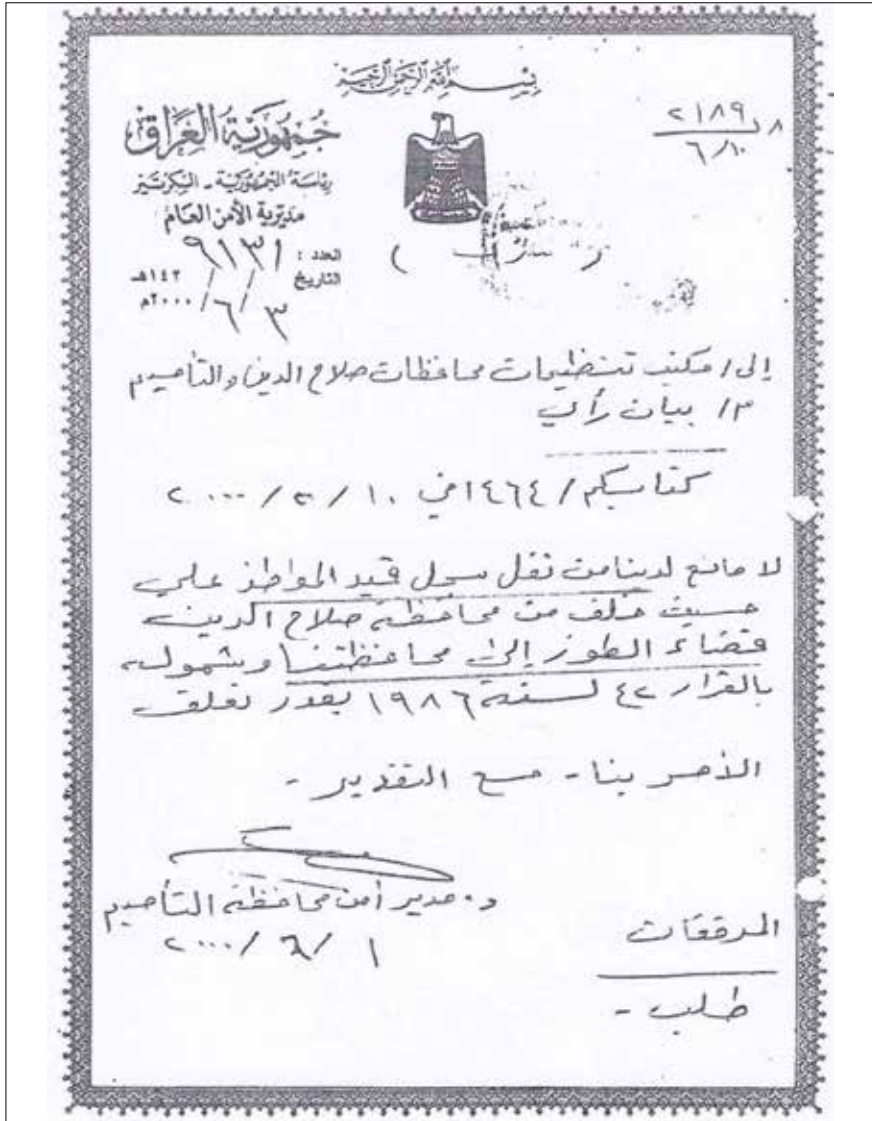 بسم الله الرحمن الرحيم
جمهورية العراق
رئاسة الجمهورية - السكرتير
مديرية الأمن العام
العدد : ٩١٣١
التاريخ / / ١٤٢هـ
٣ / ٦ / ٢٠٠٠م
٢١٨٩
٦/١٠
( )
إلى / مكتب تنظيمات محافظات صلاح الدين والتأميم
م/ بيان رأي
كتابكم / ١٤٦٤ في ١٠ / ٣ / ٢٠٠٠
لا مانع لدينا من نقل سجل قيد المواطن علي
حسين خلف من محافظة صلاح الدين
قضاء الطوز إلى محافظتنا وشموله
بالقرار ٤٢ لسنة ١٩٨٦ بقدر تعلق
الأمر بنا - مع التقدير -
د. مدير أمن محافظة التأميم
١ / ٦ / ٢٠٠٠
المرفقات
طلب -